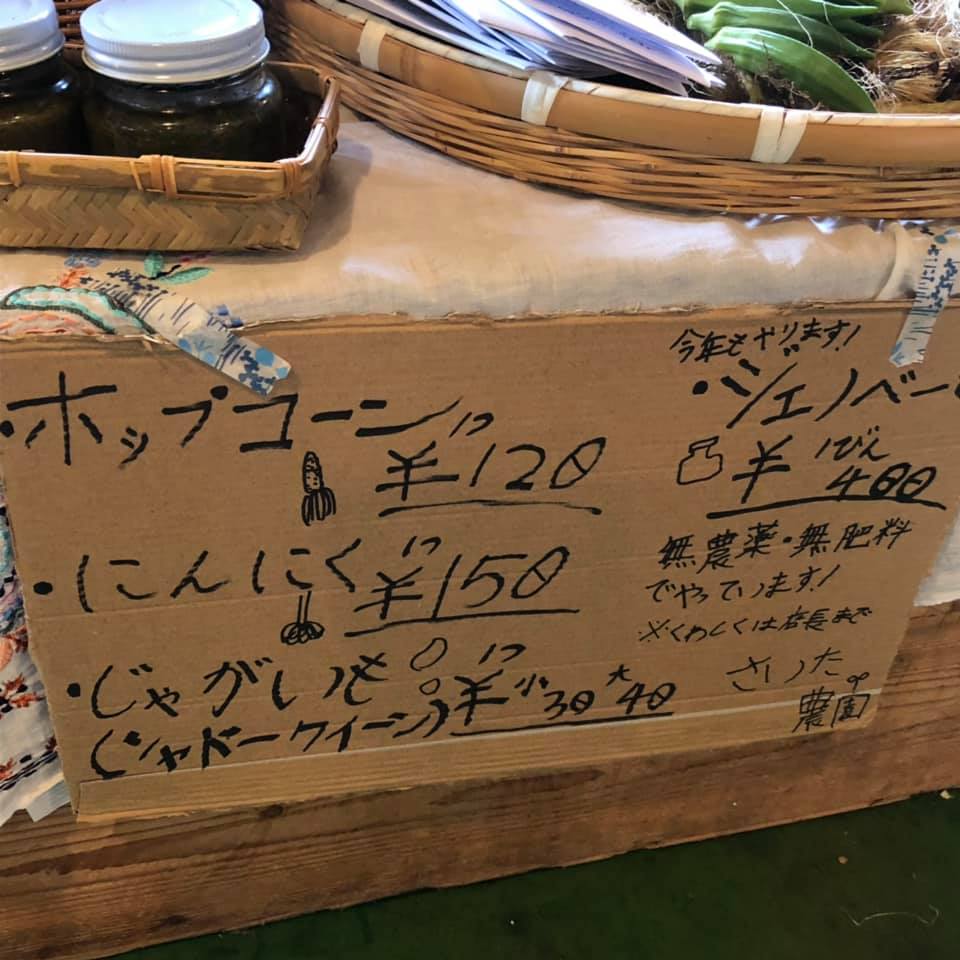 ・ポップコーン
1つ
¥120
・にんにく
1つ
¥150
・じゃがいも
(シャドークイーン)
1つ
¥小30 大40
今年もやります!
・ジェノベー
1びん
¥400
無農薬・無肥料
でやっています!
※くわしくは店長まで
農園